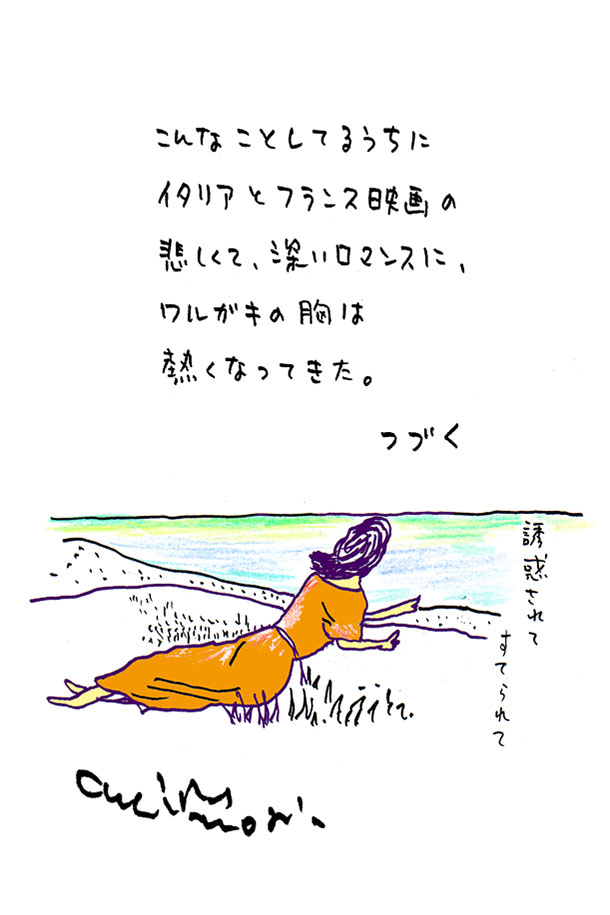 こんなことしてるうちに
イタリアとフランス映画の
悲しくて、深いロマンスに、
ワルガキの胸は
熱くなってきた。
つづく
誘惑されて
すてられて